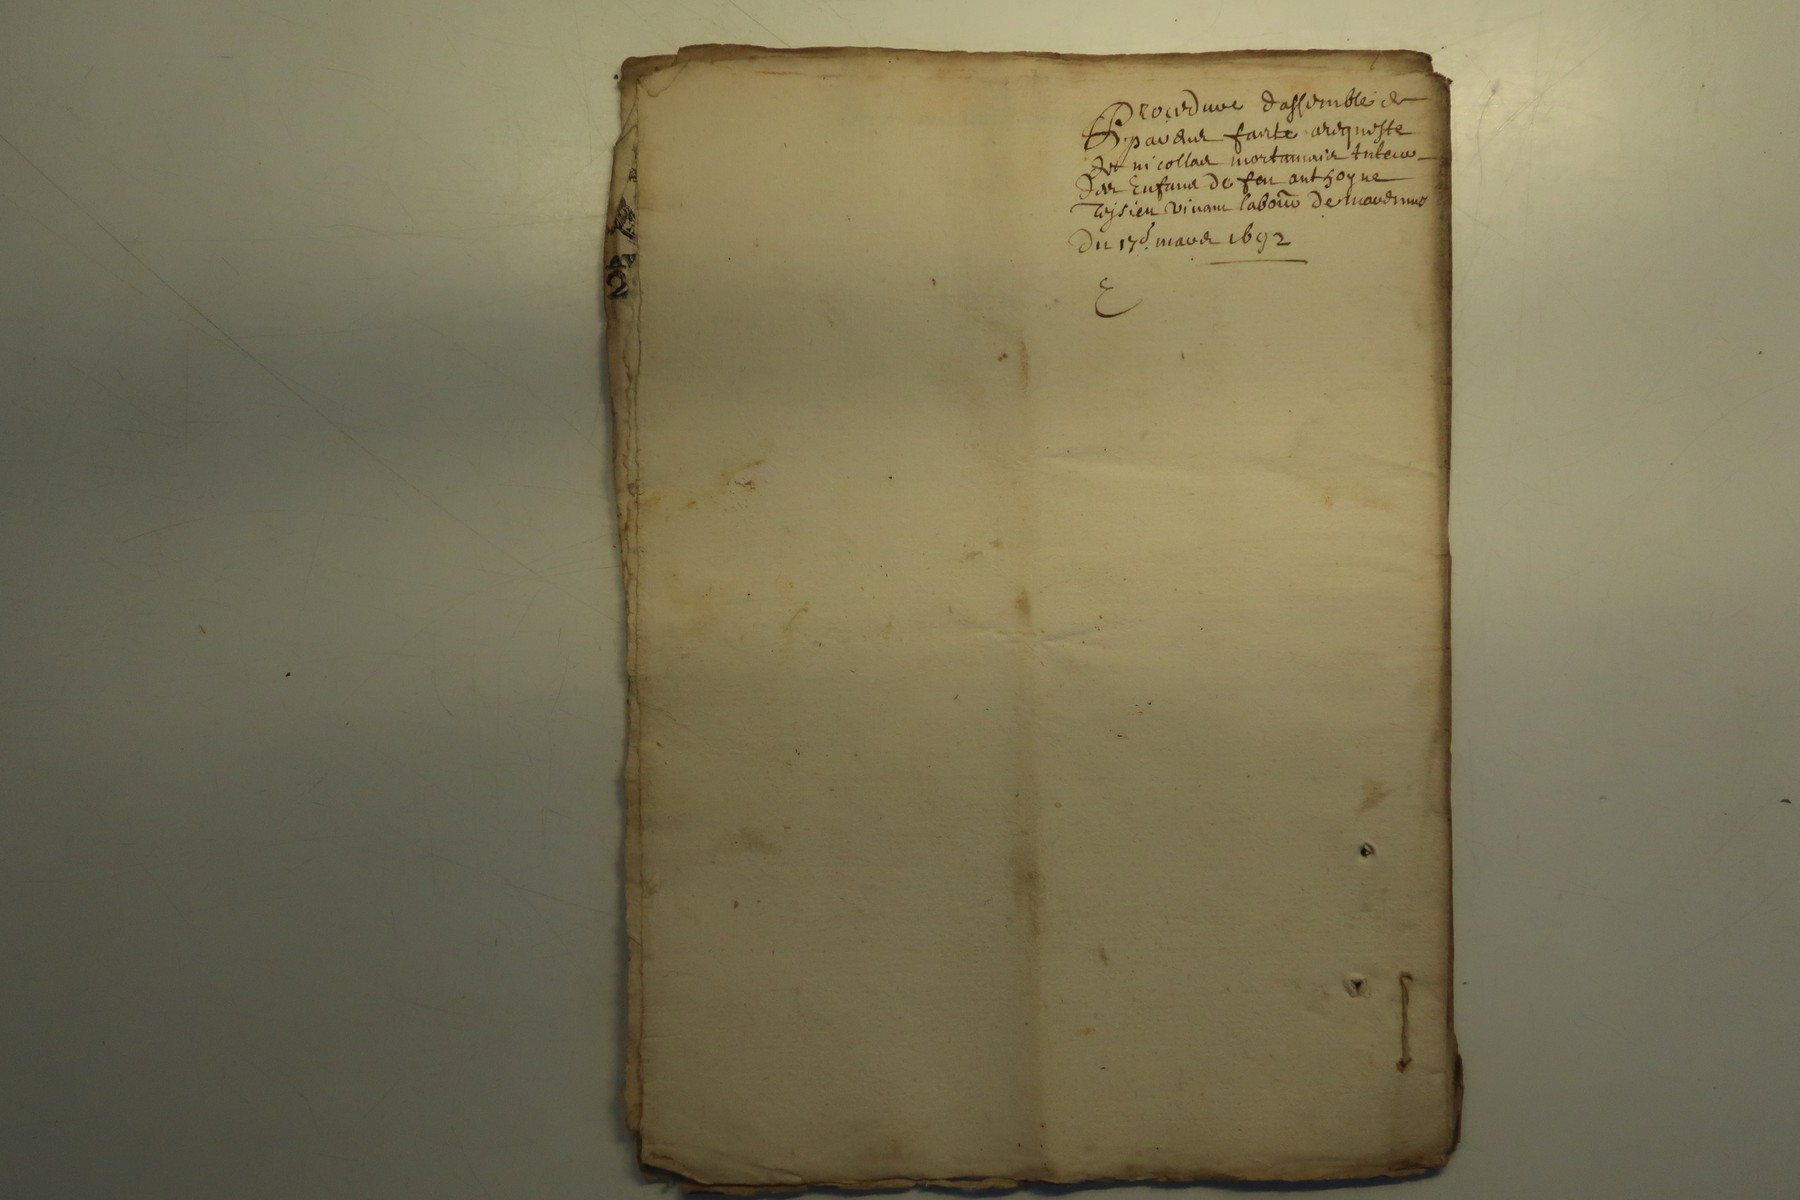 Procedure dassemblé de
parens faicte arequeste
de nicollas mortamais tuteur
des Enfans de feu anthoyne
vivant labou͞r de
Du 17e. mars 1692